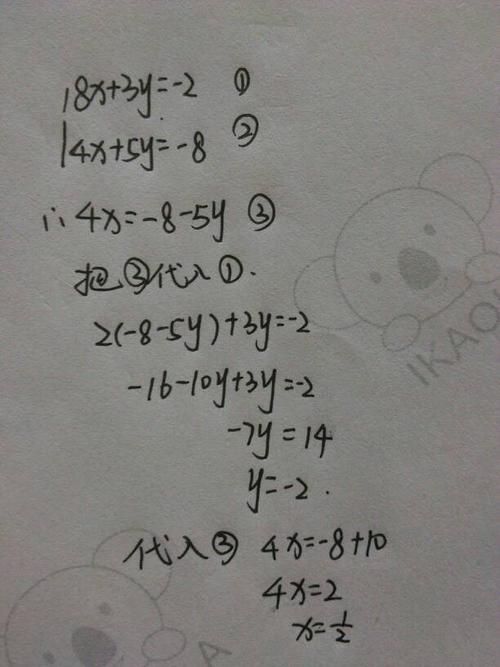 8x+3y=-2 ①
4x+5y=-8 ②
∴ 4x=-8-5y ③
把③代入①.
2(-8-5y)+3y=-2
-16-10y+3y=-2
-7y=14
y=-2.
代入③ 4x=-8+10
4x=2
x=1/2
IKAO
A